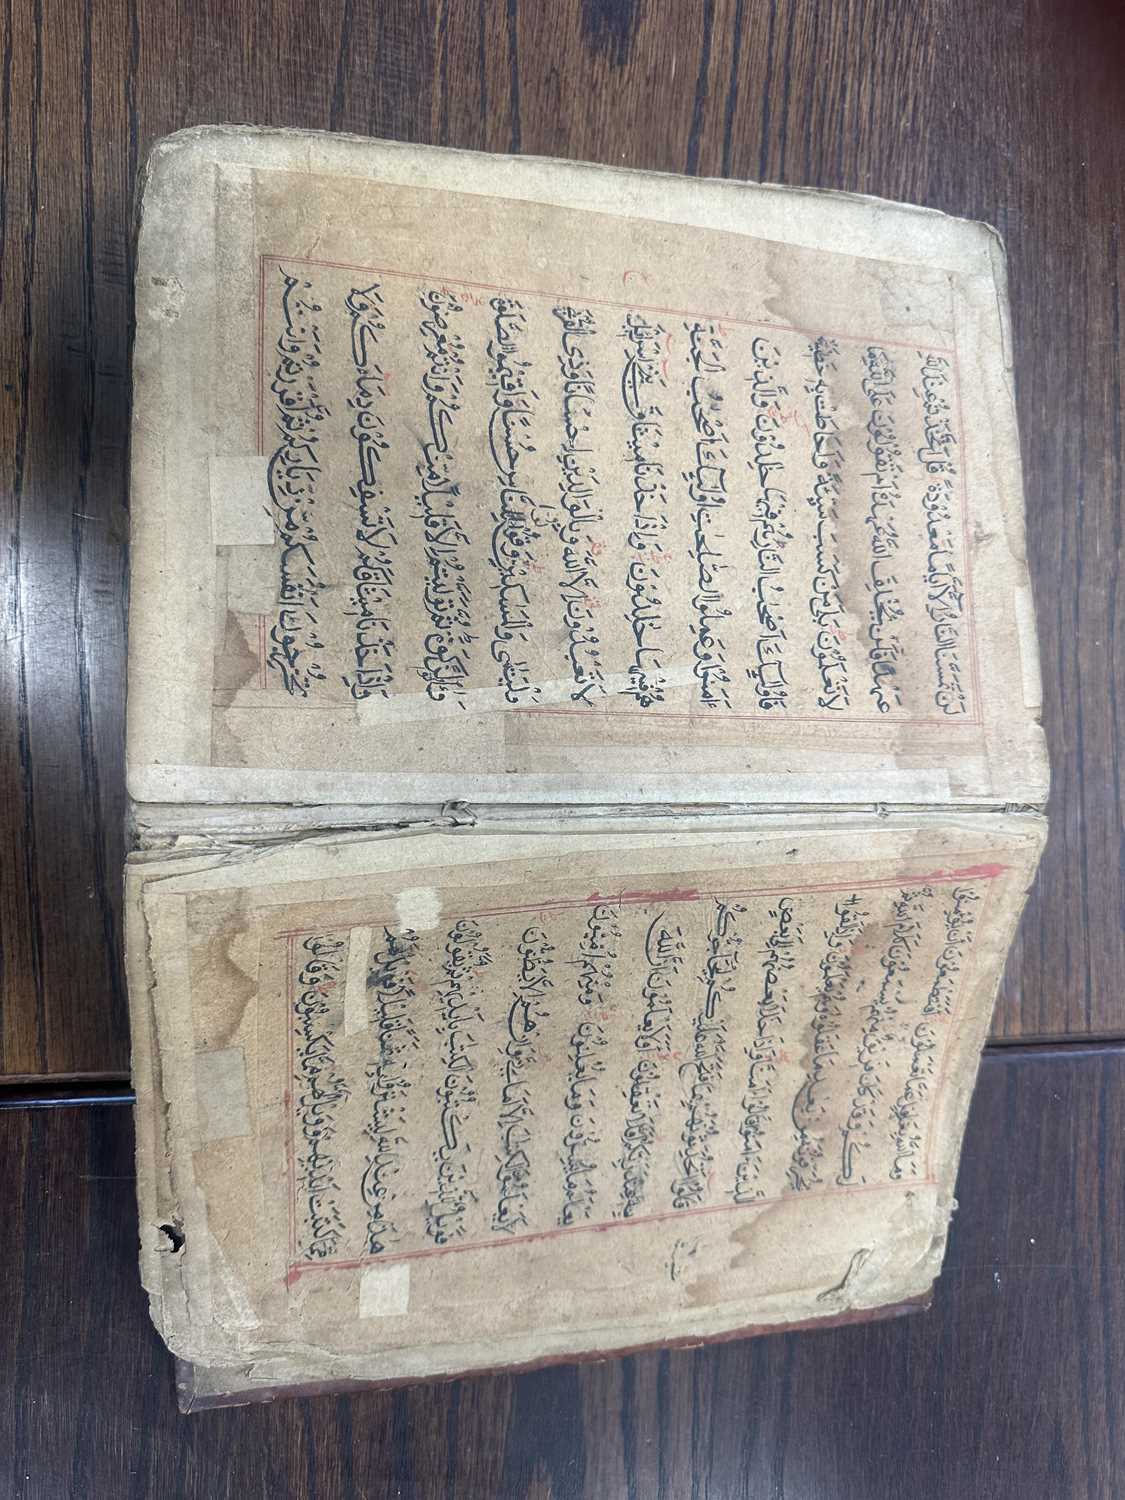 وَمَا اللَّهُ بِغَافِلٍ عَمَّا تَعْمَلُونَ اَفَتَطْمَعُونَ اَنْ يُؤْمِنُوا
لَكُمْ وَقَدْ كَانَ فَرِيقٌ مِنْهُمْ يَسْمَعُونَ كَلَامَ اللَّهِ ثُمَّ
يُحَرِّفُونَهُ مِنْ بَعْدِ مَا عَقَلُوهُ وَهُمْ يَعْلَمُونَ وَاِذَا لَقُوا
الَّذِينَ اٰمَنُوا قَالُوا اٰمَنَّا وَاِذَا خَلَا بَعْضُهُمْ اِلٰى بَعْضٍ
قَالُوا اَتُحَدِّثُونَهُمْ بِمَا فَتَحَ اللَّهُ عَلَيْكُمْ لِيُحَاجُّوكُمْ
بِهِ عِنْدَ رَبِّكُمْ اَفَلَا تَعْقِلُونَ اَوَلَا يَعْلَمُونَ اَنَّ اللَّهَ
يَعْلَمُ مَا يُسِرُّونَ وَمَا يُعْلِنُونَ وَمِنْهُمْ اُمِّيُّونَ
لَا يَعْلَمُونَ الْكِتٰبَ اِلَّا اَمَانِيَّ وَاِنْ هُمْ اِلَّا يَظُنُّونَ
فَوَيْلٌ لِلَّذِينَ يَكْتُبُونَ الْكِتٰبَ بِاَيْدِيهِمْ ثُمَّ يَقُولُونَ
هٰذَا مِنْ عِنْدِ اللَّهِ لِيَشْتَرُوا بِهِ ثَمَنًا قَلِيلًا فَوَيْلٌ لَهُمْ
مِمَّا كَتَبَتْ اَيْدِيهِمْ وَوَيْلٌ لَهُمْ مِمَّا يَكْسِبُونَ وَقَالُوا
لَنْ تَمَسَّنَا النَّارُ اِلَّا اَيَّامًا مَعْدُودَةً قُلْ اَتَّخَذْتُمْ عِنْدَ اللَّهِ
عَهْدًا فَلَنْ يُخْلِفَ اللَّهُ عَهْدَهُ اَمْ تَقُولُونَ عَلَى اللَّهِ مَا
لَا تَعْلَمُونَ بَلٰى مَنْ كَسَبَ سَيِّئَةً وَاَحَاطَتْ بِهِ خَطِيئَتُهُ
فَاُولٰئِكَ اَصْحَابُ النَّارِ هُمْ فِيهَا خٰلِدُونَ وَالَّذِينَ
اٰمَنُوا وَعَمِلُوا الصّٰلِحٰتِ اُولٰئِكَ اَصْحٰبُ الْجَنَّةِ
هُمْ فِيهَا خٰلِدُونَ وَاِذْ اَخَذْنَا مِيثَاقَ بَنِي اِسْرَائِيلَ
لَا تَعْبُدُونَ اِلَّا اللَّهَ وَبِالْوَالِدَيْنِ اِحْسَانًا وَذِي الْقُرْبٰى
وَالْيَتٰمٰى وَالْمَسٰكِينِ وَقُولُوا لِلنَّاسِ حُسْنًا وَاَقِيمُوا الصَّلٰوةَ
وَاٰتُوا الزَّكٰوةَ ثُمَّ تَوَلَّيْتُمْ اِلَّا قَلِيلًا مِنْكُمْ وَاَنْتُمْ مُعْرِضُونَ
وَاِذْ اَخَذْنَا مِيثَاقَكُمْ لَا تَسْفِكُونَ دِمَاءَكُمْ وَلَا
تُخْرِجُونَ اَنْفُسَكُمْ مِنْ دِيَارِكُمْ ثُمَّ اَقْرَرْتُمْ وَاَنْتُمْ